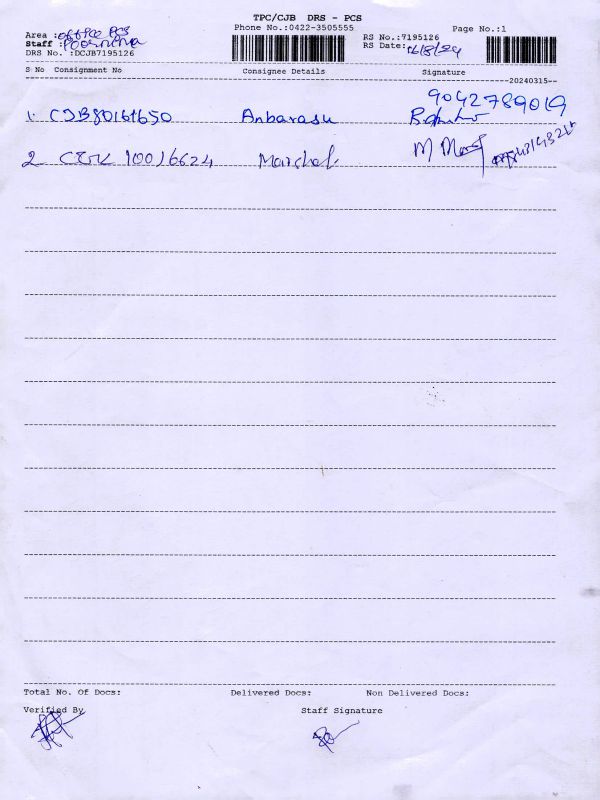 TPC/CJB DRS - PCS
Phone No.:0422-3505555
Page No.:1
Area : office PCS
RS No.:7195126
Staff : Poornima
RS Date: 16/8/24
DRS No. :DCJB7195126
S No Consignment No Consignee Details Signature
20240315
9042789019
1. CJB80161650 Anbarasu
2 10016624 Marshal
Total No. Of Docs: Delivered Docs: Non Delivered Docs:
Verified By Staff Signature